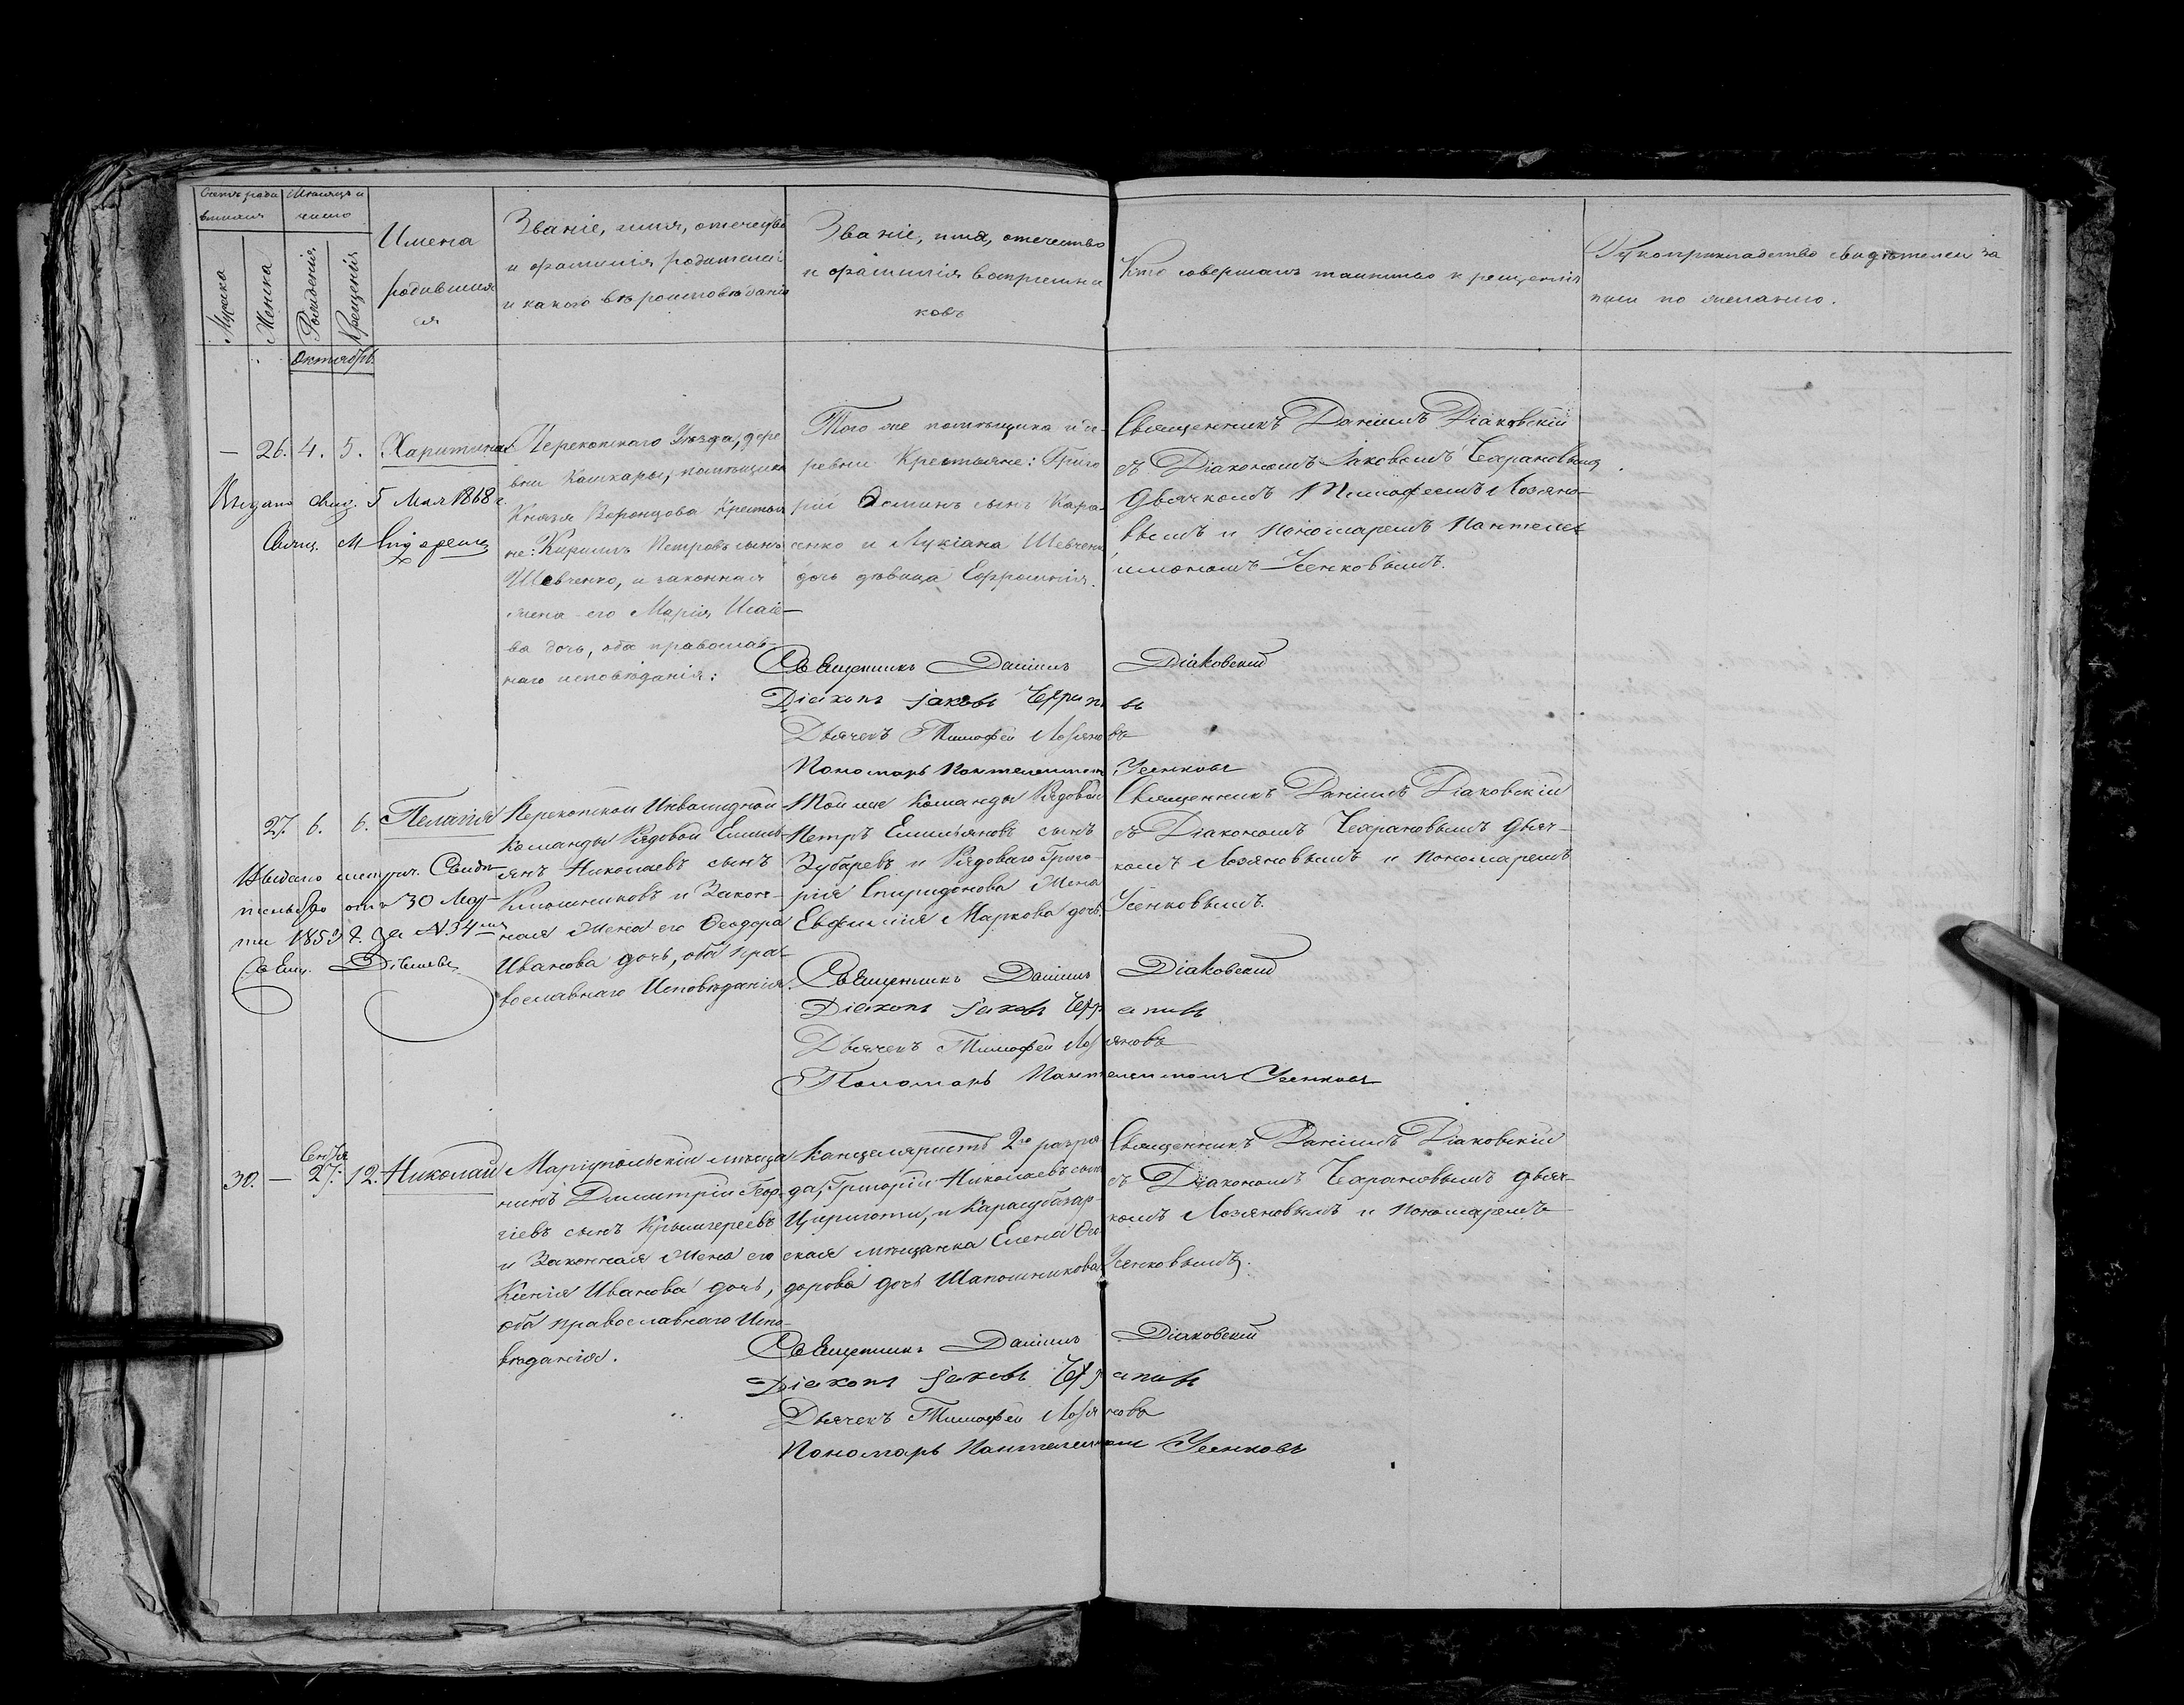 Счетъ роди
вшихся
Мѣсяцъ и
число
Мужска
Женска
Рожденія
Крещенія
Имена
родивших
ся
Званіе, имя, отечество
и фамилія родителей
и какого вѣроисповѣданія
Званіе, имя, отечество
и фамилія воспріемни
ковъ
Кто совершалъ таинство крещенія
Рукоприкладство свидѣтелей за
писи по желанію.
Октябрь
— 26. 4. 5. Харитина
Выдано свид. 5 Мая 1868 г.
Свящ. М.
Перекопскаго Уѣзда, дере
вни Кашкары, помѣщика
Князя Воронцова Крестья
не: Кириллъ Петровъ сынъ
Шевченко, и законная
жена его Марія Исаіе—
ва дочь, оба православ—
наго исповѣданія:
Того же помѣщика и де—
ревни Крестьяне: Григо
рій Ѳоминъ сынъ Кара—
сенко и Лукіана Шевченка
дочь дѣвица Евфросинія.
Священникъ Даніилъ Діаковскій
съ Діакономъ Іаковомъ
дьячкомъ Тимофеемъ Лозяно—
вымъ и Пономаремъ Пантелеи
мономъ Усенковымъ.
Священникъ Даніилъ Діаковскій
Діаконъ Іаковъ
Дьячекъ Тимофей Лозяновъ
Пономарь Пантелеимонъ Усенковъ
27. 6. 6. Пелагія
Выдано метрич. Свидѣ—
тельство отъ 30 Мар—
та 1853 г. за № 34мъ
Свящ.
Перекопской Инвалидной
Команды Рядовой Емиль
янъ Николаевъ сынъ
Ключниковъ и Закон—
ная Жена его Ѳеодора
Иванова дочь, оба пра—
вославнаго Исповѣданія.
Той же Команды Рядовой
Петръ Емильяновъ сынъ
Зубаревъ и Рядоваго Григо—
рія Спиридонова Жена
Евфимія Маркова дочь.
Священникъ Даніилъ Діаковскій
съ Діакономъ дьяч—
комъ Лозяновымъ и Пономаремъ
Усенковымъ.
Священникъ Даніилъ Діаковскій
Діаконъ Іаковъ
Дьячекъ Тимофей Лозяновъ
Пономарь Пантелеимонъ Усенковъ
30. — 27. 12. Николай
Маріупольскій мѣща
нинъ Димитрій Геор—
гіевъ сынъ Крымгереевъ
и Законная Жена его
Ксенія Иванова дочь,
оба православнаго Испо—
вѣданія.
Канцеляристъ 2го разря
да, Григорій Николаевъ сынъ
Цириготи, и Карасубазар—
ская мѣщанка Елена Ѳео
дорова дочь Шапошникова.
Священникъ Даніилъ Діаковскій
съ Діакономъ дьяч—
комъ Лозяновымъ и Пономаремъ
Усенковымъ.
Священникъ Даніилъ Діаковскій
Діаконъ Іаковъ
Дьячекъ Тимофей Лозяновъ
Пономарь Пантелеимонъ Усенковъ